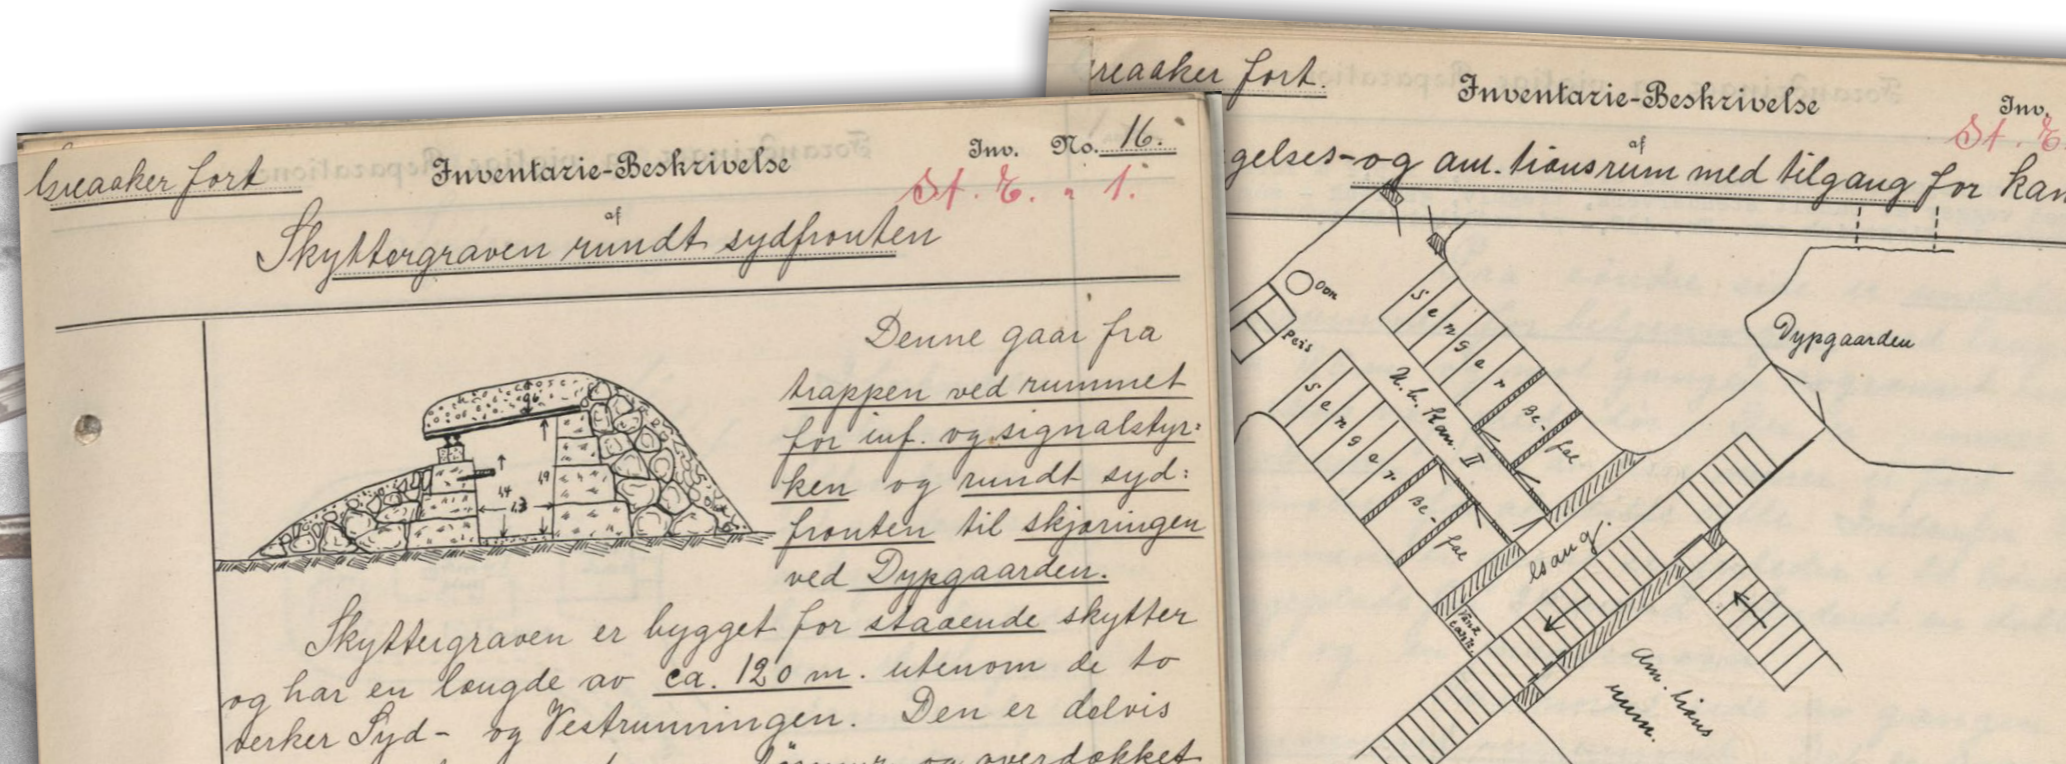 Greaaker fort
Inventarie-Beskrivelse
Inv. No. 16.
St. E. 1.
af
Skyttergraven rundt sydfronten
Denne gaar fra
trappen ved rummet
for inf. og signalstyr:
ken og rundt syd:
fronten til skjæringen
ved Dypgaarden.
1,4
1,3
1,9
Skyttergraven er bygget for staaende skytter
og har en længde av ca. 120 m. utenom de to
verker Syd- og Vestrunningen. Den er delvis
og overdækket
reaaker fort.
Inventarie-Beskrivelse
Inv.
St. E.
af
gelses- og am.tionsrum med tilgang for kan
Ovn
Peis
Senger
Senger
U.h. Kan. II
Be-
fal
Be-
fal
Dypgaarden
Gang
am.tions
rum.